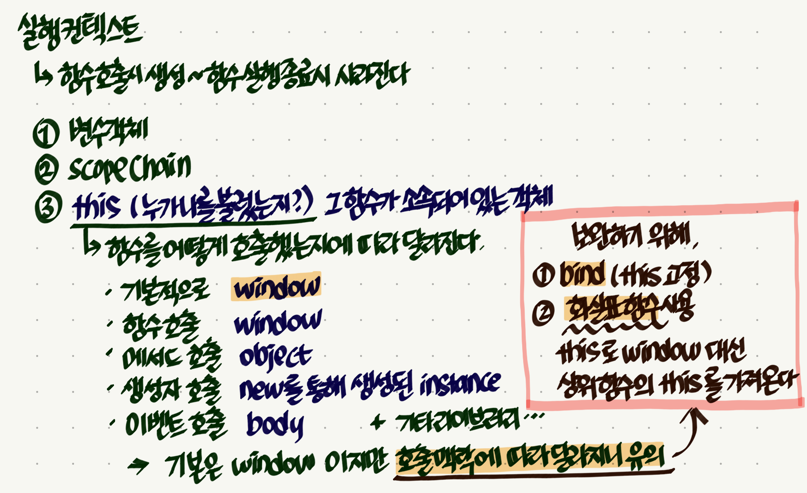 실행컨텍스트
↳ 함수호출시 생성 ~ 함수실행종료시 사라진다
① 변수객체
② scopeChain
③ this (누가 나를 불렀는지?) 그 함수가 소속되어 있는 객체
↳ 함수를 어떻게 호출했는지에 따라 달라진다.
· 기본적으로 window
· 함수 호출 window
· 메서드 호출 object
· 생성자 호출 new를 통해 생성된 instance
· 이벤트 호출 body + 기타라이브러리 ...
→ 기본은 window 이지만 호출맥락에 따라 달라지니 유의
보완하기 위해,
① bind (this 고정)
② 화살표 함수 사용
this로 window 대신
상위함수의 this를 가져온다